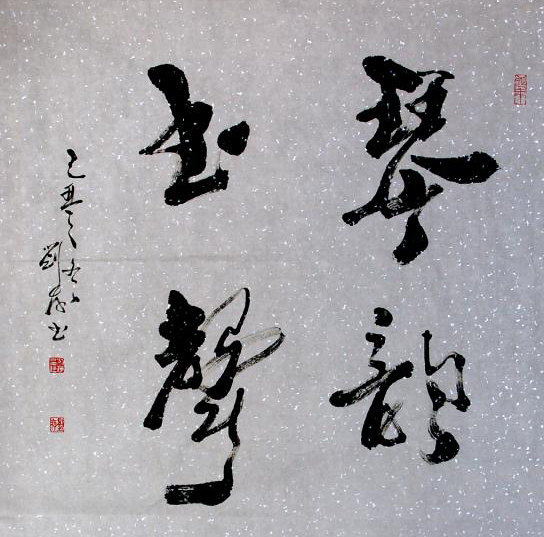 琴韵
书声
己丑之春刘
书